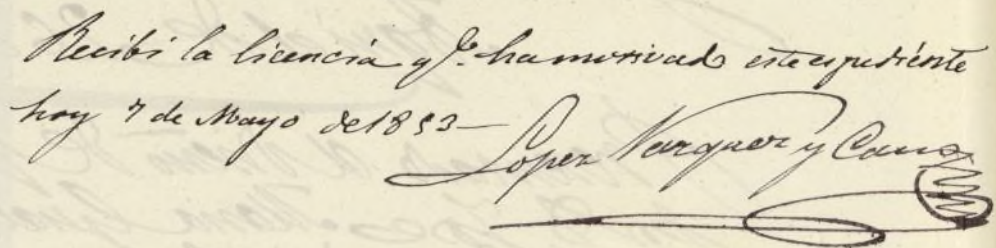 Recibi la licencia qe. ha motivado este espediente
hoy 7 de Mayo de 1853—
Lopez Vazquez y Cano